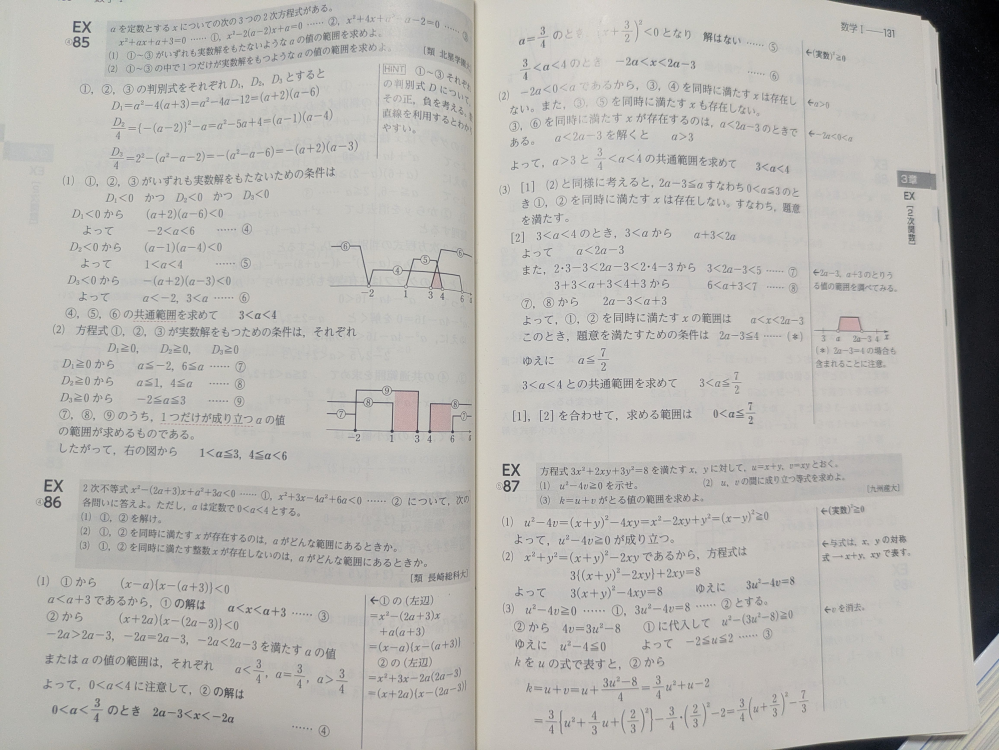 EX
85
aを定数とするxについての次の3つの2次方程式がある。
x²+ax+a+3=0 …… ①, x²-2(a-2)x+a=0 …… ②, x²+4x+a²-a-2=0 …… ③
(1) ①〜③がいずれも実数解をもたないようなaの値の範囲を求めよ。
(2) ①〜③の中で1つだけが実数解をもつようなaの値の範囲を求めよ。
[類 北星学園大
①, ②, ③の判別式をそれぞれ D₁, D₂, D₃とすると
D₁=a²-4(a+3)=a²-4a-12=(a+2)(a-6)
D₂/4={-(a-2)}²-a=a²-5a+4=(a-1)(a-4)
D₃/4=2²-(a²-a-2)=-(a²-a-6)=-(a+2)(a-3)
HINT ①〜③それぞれ
の判別式Dについて,
その正, 負を考える。
直線を利用するとわか
やすい。
(1) ①, ②, ③がいずれも実数解をもたないための条件は
D₁<0 かつ D₂<0 かつ D₃<0
D₁<0から (a+2)(a-6)<0
よって -2<a<6 …… ④
D₂<0から (a-1)(a-4)<0
よって 1<a<4 …… ⑤
D₃<0から -(a+2)(a-3)<0
よって a<-2, 3<a …… ⑥
④, ⑤, ⑥の共通範囲を求めて 3<a<4
⑥ ④ ⑤ ⑥
-2 1 3 4 6
(2) 方程式①, ②, ③が実数解をもつための条件は, それぞれ
D₁≧0, D₂≧0, D₃≧0
D₁≧0から a≦-2, 6≦a …… ⑦
D₂≧0から a≦1, 4≦a …… ⑧
D₃≧0から -2≦a≦3 …… ⑨
⑦, ⑧, ⑨のうち, 1つだけが成り立つaの値
の範囲が求めるものである。
したがって, 右の図から 1<a≦3, 4≦a<6
⑦ ⑧ ⑨ ⑧ ⑦
-2 1 3 4 6
EX
86
2次不等式 x²-(2a+3)x+a²+3a<0 …… ①, x²+3x-4a²+6a<0 …… ② について, 次の
各問いに答えよ。ただし, aは定数で0<a<4とする。
(1) ①, ②を解け。
(2) ①, ②を同時に満たすxが存在するのは, aがどんな範囲にあるときか。
(3) ①, ②を同時に満たす整数xが存在しないのは, aがどんな範囲にあるときか。
[類 長崎総科大]
(1) ①から (x-a){x-(a+3)}<0
a<a+3であるから, ①の解は a<x<a+3 …… ③
②から (x+2a){x-(2a-3)}<0
-2a>2a-3, -2a=2a-3, -2a<2a-3を満たすaの値
またはaの値の範囲は, それぞれ a<3/4, a=3/4, a>3/4
よって, 0<a<4に注意して, ②の解は
0<a<3/4のとき 2a-3<x<-2a
…… ④
←①の(左辺)
=x²-(2a+3)x
+a(a+3)
=(x-a){x-(a+3)}
②の(左辺)
=x²+3x-2a(2a-3)
=(x+2a){x-(2a-3)}
数学Ⅰ——131
a=3/4のとき (x+3/2)²<0となり 解はない …… ⑤
3/4<a<4のとき -2a<x<2a-3
…… ⑥
←(実数)²≧0
(2) -2a<0<aであるから, ③, ④を同時に満たすxは存在し
ない。また, ③, ⑤を同時に満たすxも存在しない。
③, ⑥を同時に満たすxが存在するのは, a<2a-3のときで
ある。 a<2a-3を解くと a>3
よって, a>3と3/4<a<4の共通範囲を求めて 3<a<4
←a>0
←-2a<0<a
(3) [1] (2)と同様に考えると, 2a-3≦aすなわち0<a≦3のと
き①, ②を同時に満たすxは存在しない。すなわち, 題意
を満たす。
[2] 3<a<4のとき, 3<aから a+3<2a
よって a<2a-3
また, 2・3-3<2a-3<2・4-3から 3<2a-3<5 …… ⑦
3+3<a+3<4+3から 6<a+3<7 …… ⑧
⑦, ⑧から 2a-3<a+3
よって, ①, ②を同時に満たすxの範囲は a<x<2a-3
このとき, 題意を満たすための条件は 2a-3≦4 ……(*)
ゆえに a≦7/2
3<a<4との共通範囲を求めて 3<a≦7/2
[1], [2]を合わせて, 求める範囲は 0<a≦7/2
←2a-3, a+3のとりう
る値の範囲を調べてみる。
3 a 2a-3 4 x
(*) 2a-3=4の場合も
含まれることに注意。
3章
EX
[2次関数]
EX
87
方程式3x²+2xy+3y²=8を満たすx, yに対して, u=x+y, v=xyとおく。
(1) u²-4v≧0を示せ。 (2) u, vの間に成り立つ等式を求めよ。
(3) k=u+vがとる値の範囲を求めよ。
[九州産大]
(1) u²-4v=(x+y)²-4xy=x²-2xy+y²=(x-y)²≧0
よって, u²-4v≧0が成り立つ。
←(実数)²≧0
(2) x²+y²=(x+y)²-2xyであるから, 方程式は
3{(x+y)²-2xy}+2xy=8
よって 3(x+y)²-4xy=8 ゆえに 3u²-4v=8
←与式は, x, yの対称
式→x+y, xyで表す。
(3) u²-4v≧0 …… ①, 3u²-4v=8 …… ②とする。
②から 4v=3u²-8 ①に代入して u²-(3u²-8)≧0
ゆえに u²-4≦0 よって -2≦u≦2 …… ③
←vを消去。
kをuの式で表すと, ②から
k=u+v=u+(3u²-8)/4=3/4u²+u-2
=3/4{u²+4/3u+(2/3)²}-3/4・(2/3)²-2=3/4(u+2/3)²-7/3